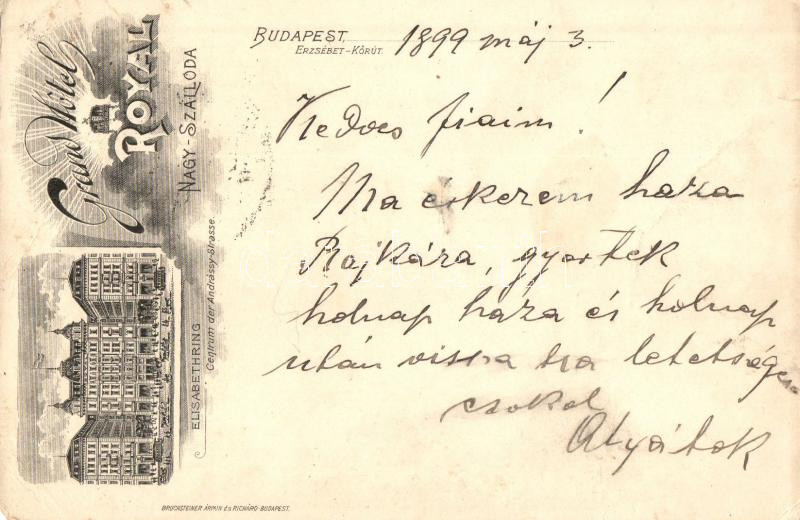 Grand Hotel
ROYAL
NAGY-SZÁLLODA
ELISABETHRING
Centrum der Andrássy-Strasse.
BUDAPEST,
ERZSÉBET-KÖRÚT.
1899 máj 3.
Kedves fiaim!
Ma érkezem haza
Rajkára, gyertek
holnap háza és holnap
után vissza ha lehetséges
csokol
Atyátok
BRUCHSTEINER ÁRMIN ÉS RICHÁRD-BUDAPEST.